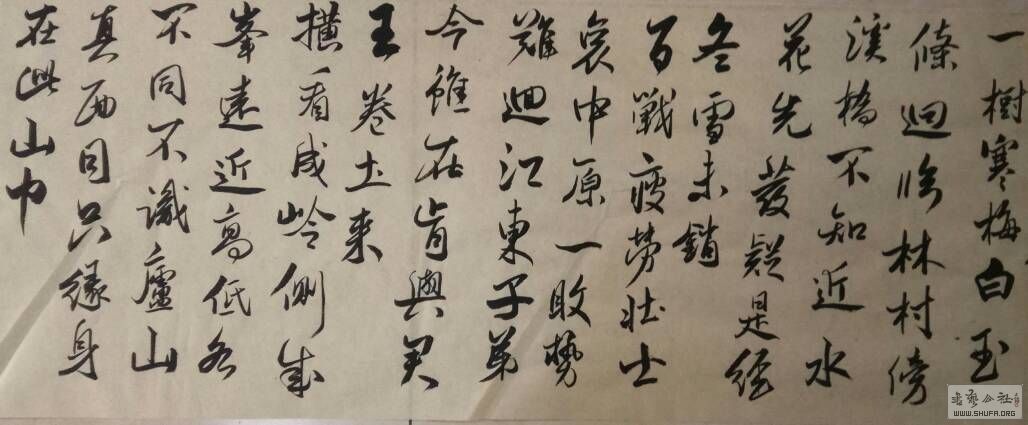 一樹寒梅白玉
條迥臨林村傍
溪橋不知近水
花先發疑是經
冬雪未銷
百戰疲勞壯士
哀中原一敗勢
難迴江東子弟
今雖在肯與君
王卷土來
橫看成岭側成
峯遠近高低各
不同不識廬山
真面目只緣身
在此山中
WWW.SHUFA.ORG